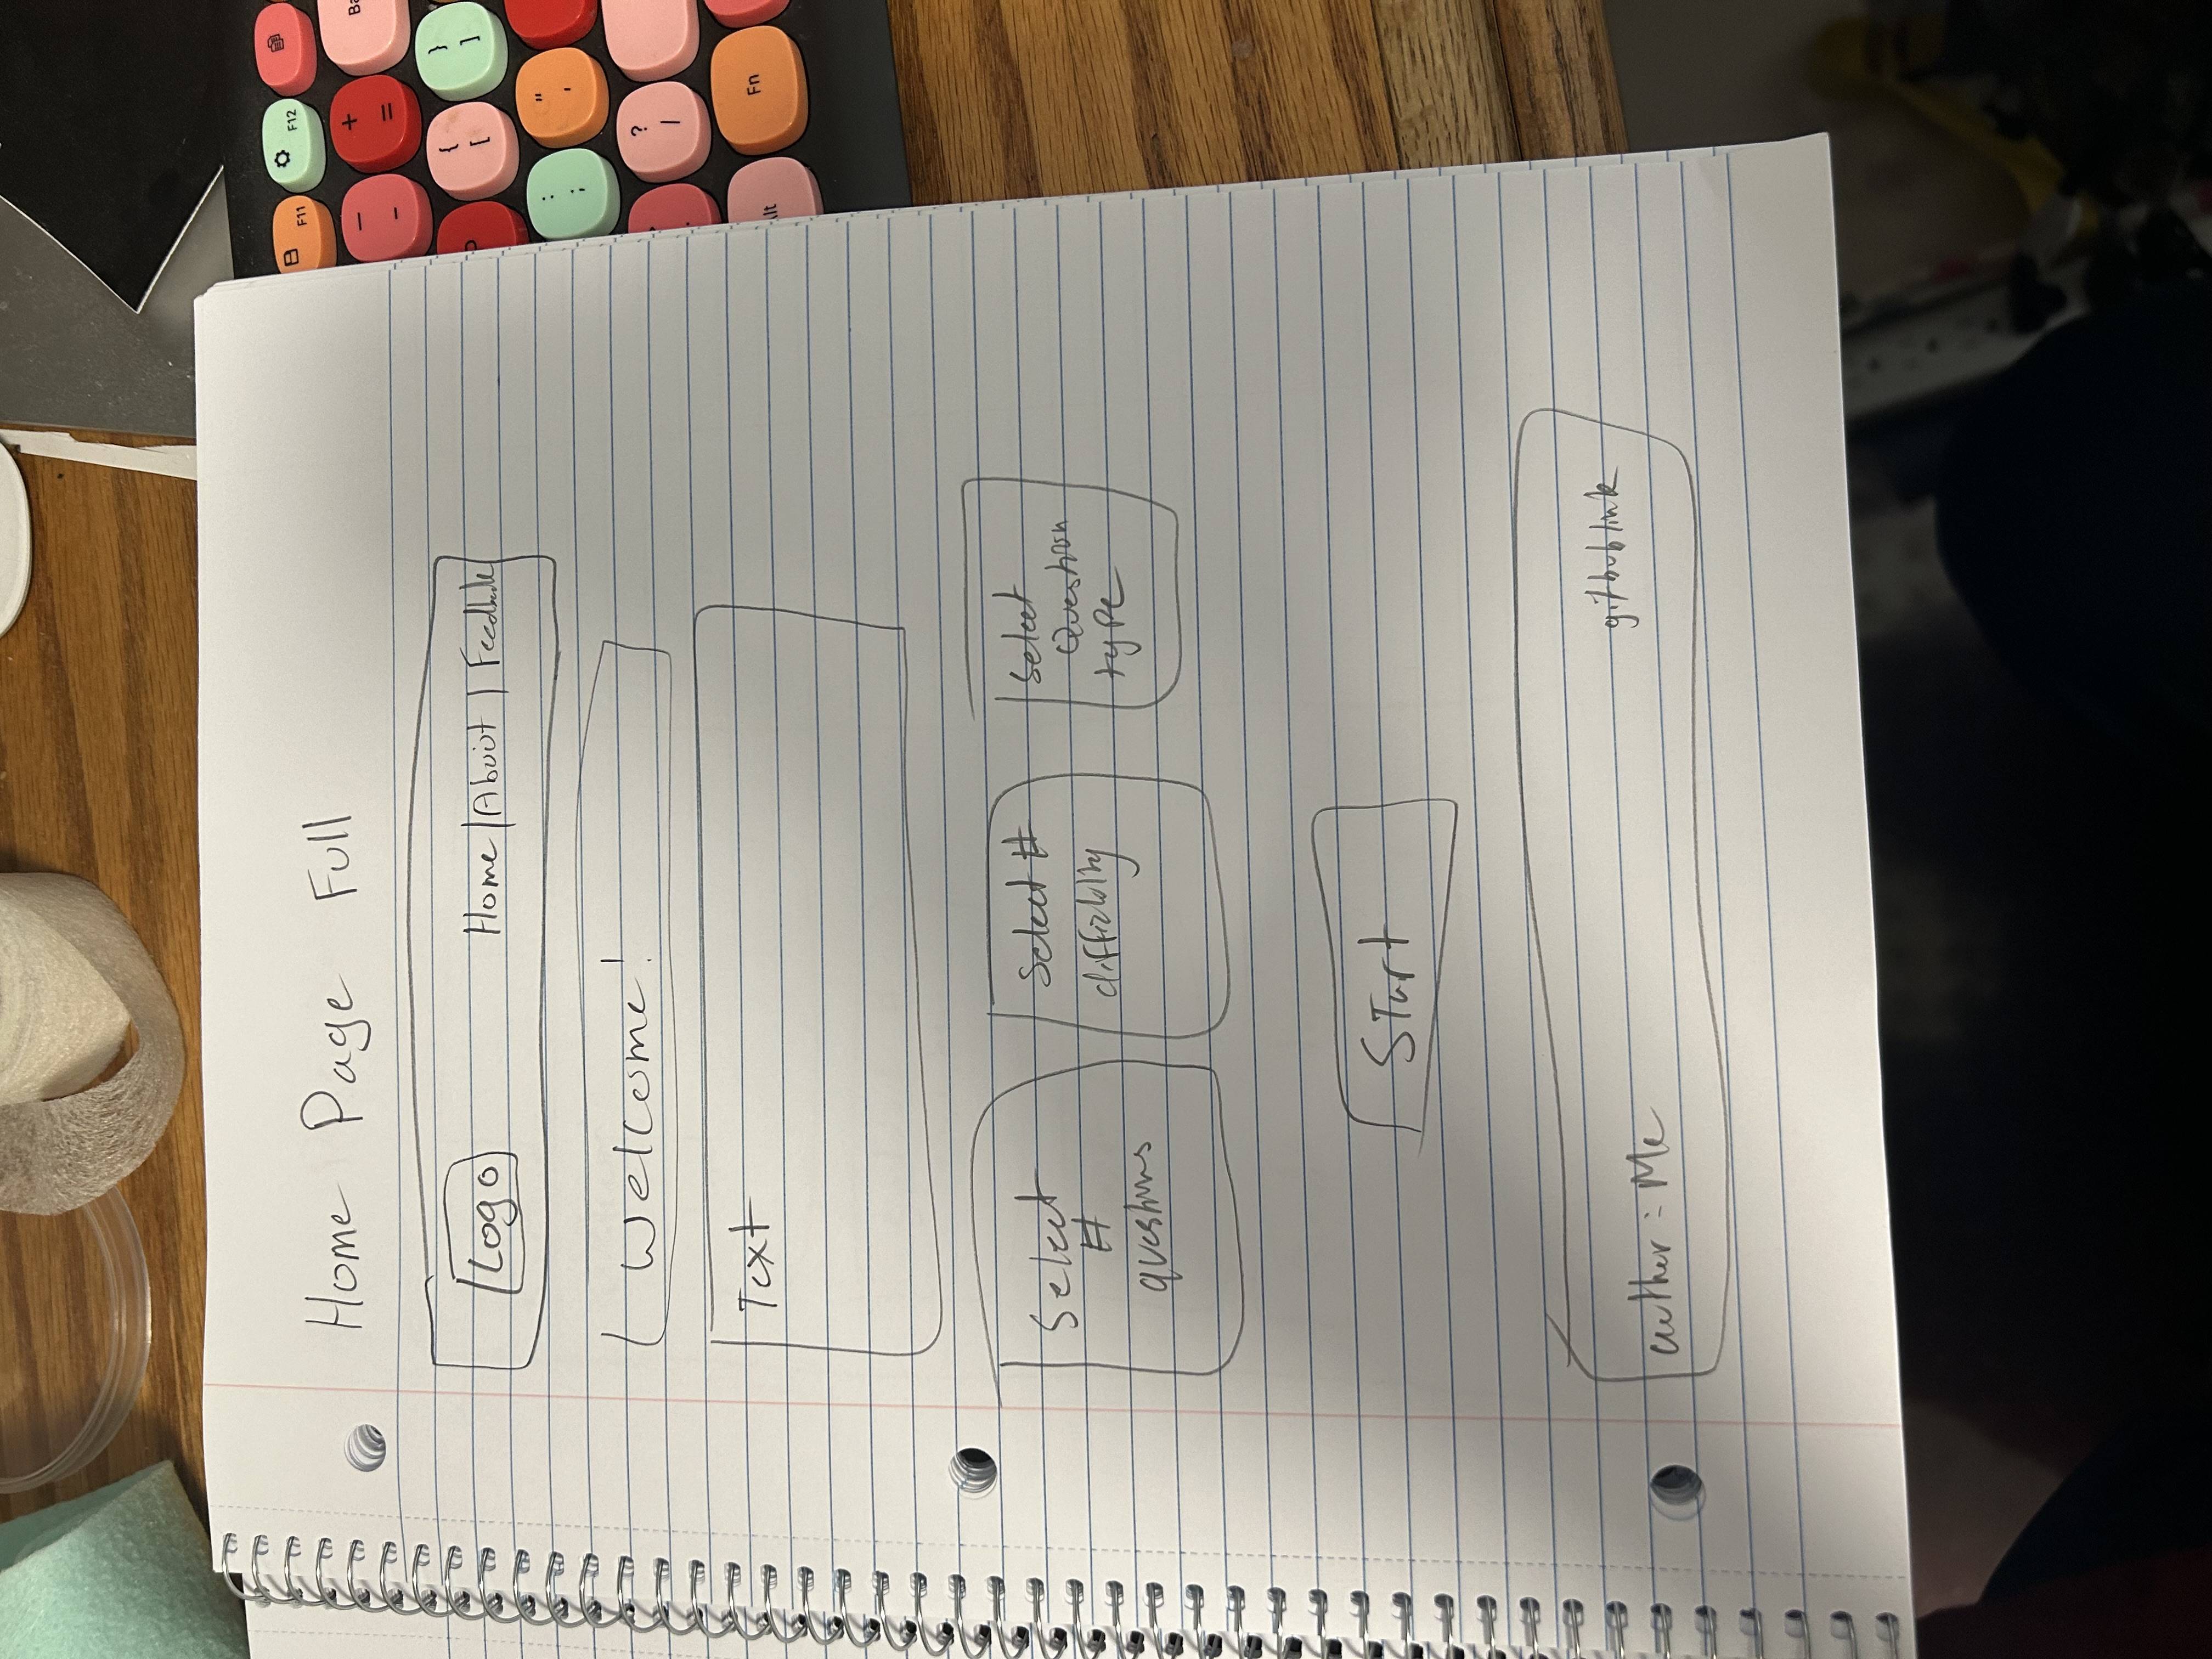 Home Page Full
Logo
Home | About | Feedback
Welcome!
Text
Select
#
questions
Select #
difficulty
Select
Question
type
Start
author: Me
github link
F11
F12
Ba
-
-
+
=
{
[
}
]
P
:
;
"
'
?
/
.
Alt
Fn